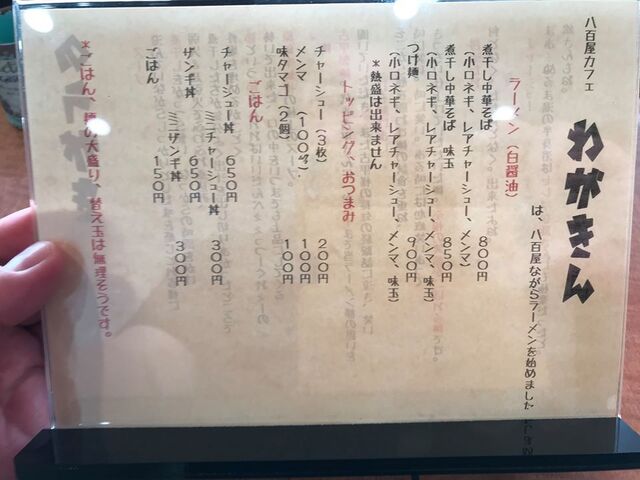 八百屋カフェ
わがきん
は、八百屋ながらラーメンを始めました
ラーメン（白醤油）
煮干し中華そば 800円
（小口ネギ、レアチャーシュー、メンマ）
煮干し中華そば 味玉 850円
（小口ネギ、レアチャーシュー、メンマ、味玉）
つけ麺 900円
（小口ネギ、レアチャーシュー、メンマ、味玉）
＊熱盛は出来ません
トッピング、おつまみ
チャーシュー（3枚） 200円
メンマ（100g） 100円
味タマゴ（2個） 100円
ごはん
チャーシュー丼 650円
ミニチャーシュー丼 300円
ザンギ丼 650円
ミニザンギ丼 300円
ごはん 150円
＊ごはん、麺の大盛り、替え玉は無理そうです。